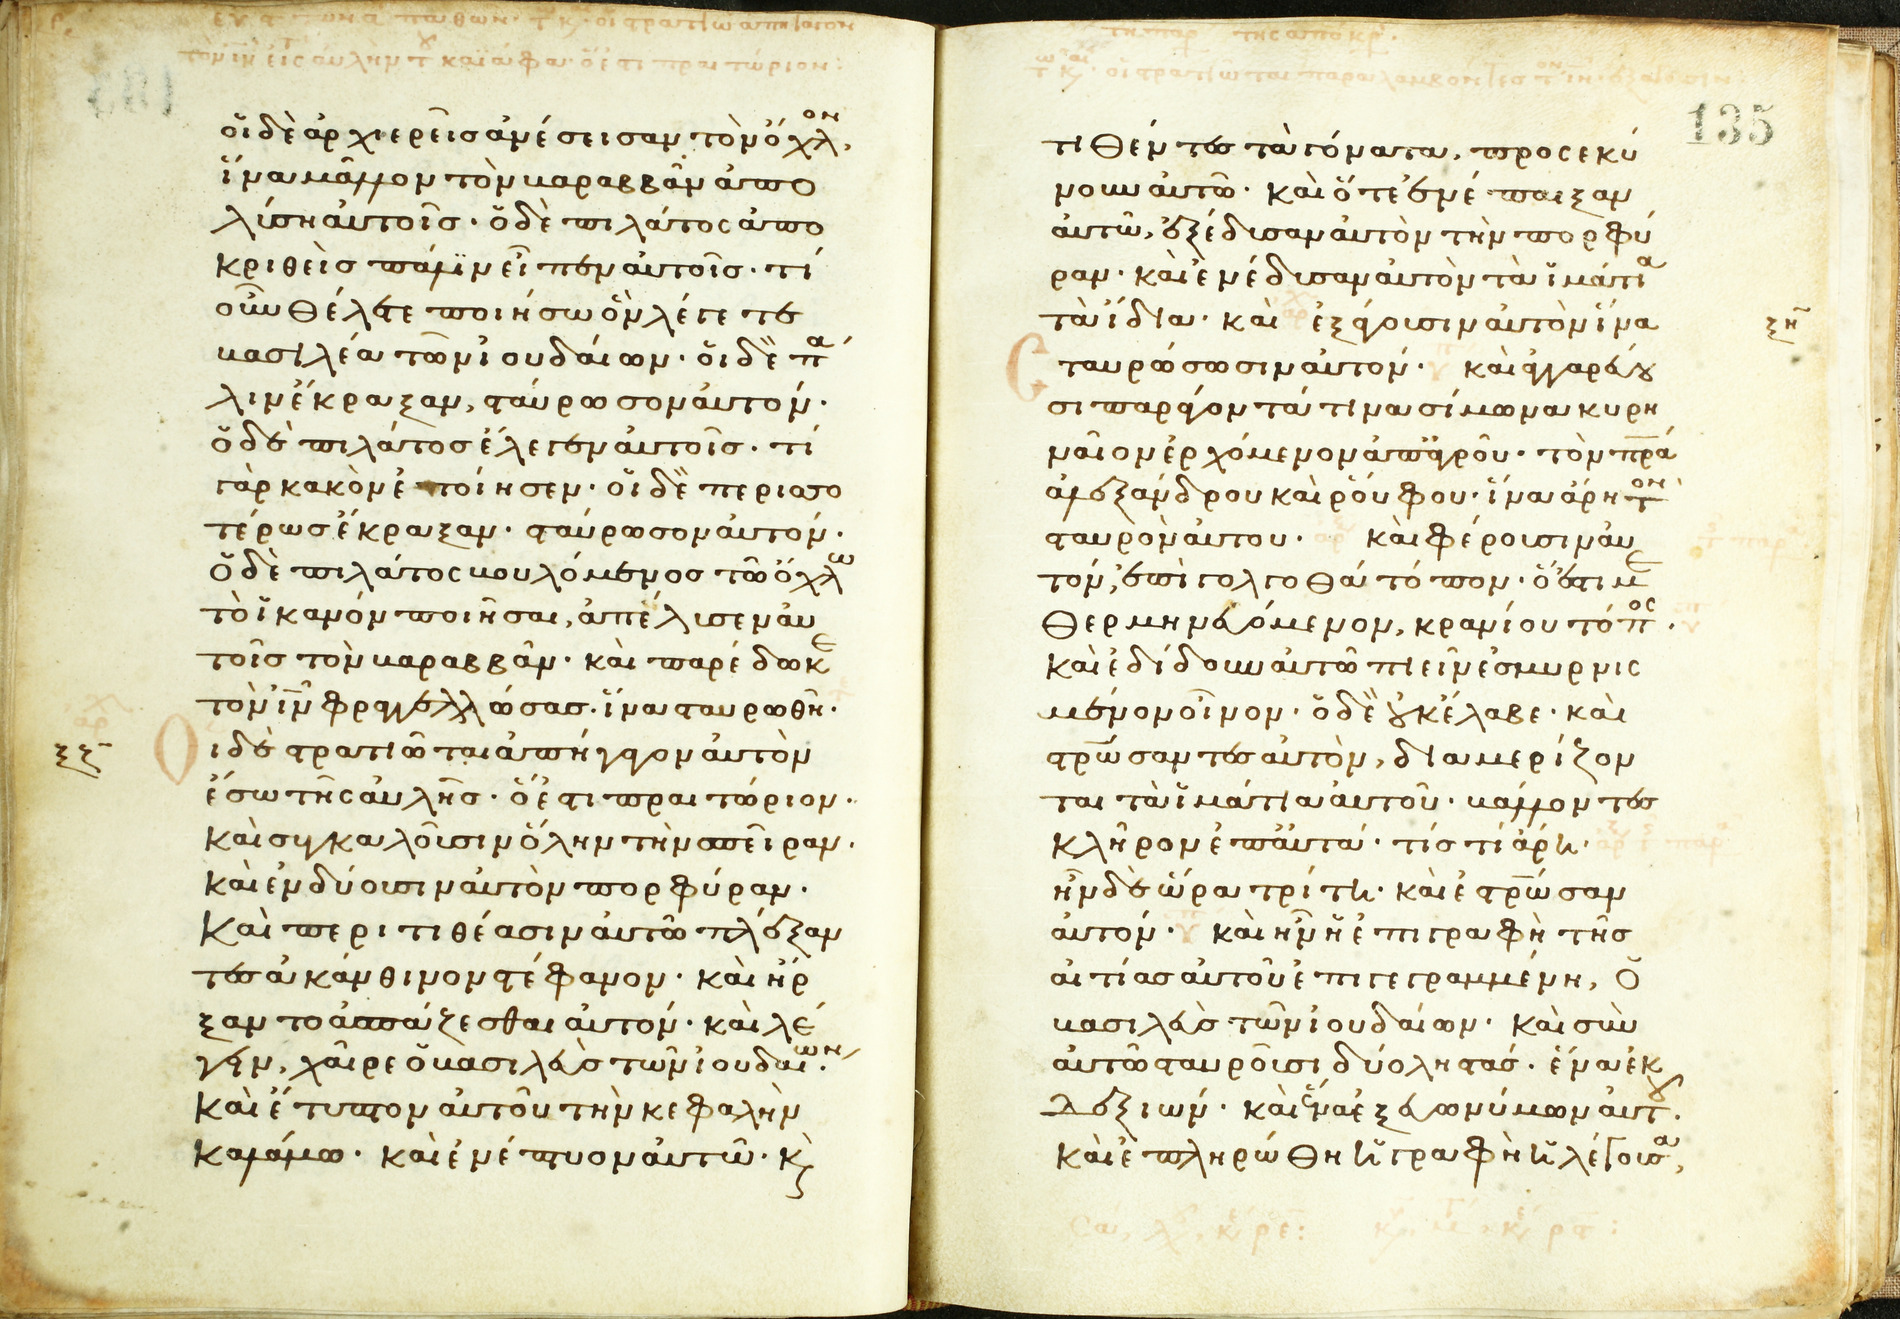 οἱ δὲ ἀρχιερεῖς ἀνέσεισαν τὸν ὄχλον,
ἵνα μᾶλλον τὸν βαραββᾶν ἀπο
λύση αὐτοῖς· ὁ δὲ πιλάτος ἀπο
κριθεὶς πάλιν εἶπεν αὐτοῖς· τί
οὖν θέλετε ποιήσω ὃν λέγετε
βασιλέα τῶν ἰουδαίων· οἱ δὲ πά
λιν ἔκραξαν, σταύρωσον αὐτόν·
ὁ δὲ πιλάτος ἔλεγεν αὐτοῖς· τί
γὰρ κακὸν ἐποίησεν· οἱ δὲ περισσο
τέρως ἔκραξαν· σταύρωσον αὐτόν·
ὁ δὲ πιλάτος βουλόμενος τῶ ὄχλω
τὸ ἱκανὸν ποιῆσαι, ἀπέλυσεν αὐ
τοῖς τὸν βαραββᾶν· καὶ παρέδωκε
τὸν ἰν φραγελλώσας· ἵνα σταυρωθῆ·
ξζ Οἱ δὲ στρατιῶται ἀπήγαγον αὐτὸν
ἔσω τῆς αὐλῆς· ὅ ἐστι πραιτώριον·
καὶ συγκαλοῦσιν ὅλην τὴν σπεῖραν·
καὶ ἐνδύουσιν αὐτὸν πορφύραν·
Καὶ περιτιθέασιν αὐτῶ πλέξαν
τες ἀκάνθινον στέφανον· καὶ ἤρ
ξαντο ἀσπάζεσθαι αὐτόν· καὶ λέ
γειν, χαῖρε ὁ βασιλεὺς τῶν ἰουδαίων·
Καὶ ἔτυπτον αὐτοῦ τὴν κεφαλὴν
καλάμω· καὶ ἐνέπτυον αὐτῶ· κ
135
τιθέντες τὰ γόνατα, προσεκύ
νουν αὐτῶ· καὶ ὅτε ἐνέπαιξαν
αὐτῶ, ἐξέδυσαν αὐτὸν τὴν πορφύ
ραν· καὶ ἐνέδυσαν αὐτὸν τὰ ἱμάτια
τὰ ἴδια· καὶ ἐξάγουσιν αὐτὸν ἵνα ξη
σταυρώσωσιν αὐτόν· καὶ ἀγγαρεύου
σι παράγοντά τινα σίμωνα κυρη
ναῖον ἐρχόμενον ἀπἀγροῦ· τὸν πρα
ἀλεξάνδρου καὶ ῥούφου· ἵνα ἄρη τον
σταυρὸν αὐτου· καὶ φέρουσιν αὐ
τόν, ἐπὶ γολγοθᾶ τόπον· ὅ ἐστι με
θερμηνευόμενον, κρανίου τόπος·
καὶ ἐδίδουν αὐτῶ πιεῖν ἐσμυρνισ
μένον οἶνον· ὁ δὲ οὐκ ἔλαβε· καὶ
στρώσαντες αὐτὸν, διαμερίζον
ται τὰ ἱμάτια αὐτοῦ· βάλλοντες
κλῆρον ἐπἀυτά· τίς τί ἄρη·
ἦν δὲ ὥρα τρίτη· καὶ ἐστρώσαν
αὐτόν· καὶ ἦν ἡ ἐπιγραφὴ τῆς
αἰτίας αὐτοῦ ἐπιγεγραμμένη, ὁ
βασιλεὺς τῶν ἰουδαίων· καὶ σὺν
αὐτῶ σταυροῦσι δύο ληστάς· ἕνα ἐκ
δεξιῶν· καὶ ἕνα ἐξ εὐωνύμων αὐτοῦ·
καὶ ἐπληρώθη ἡ γραφὴ ἡ λέγουσα,